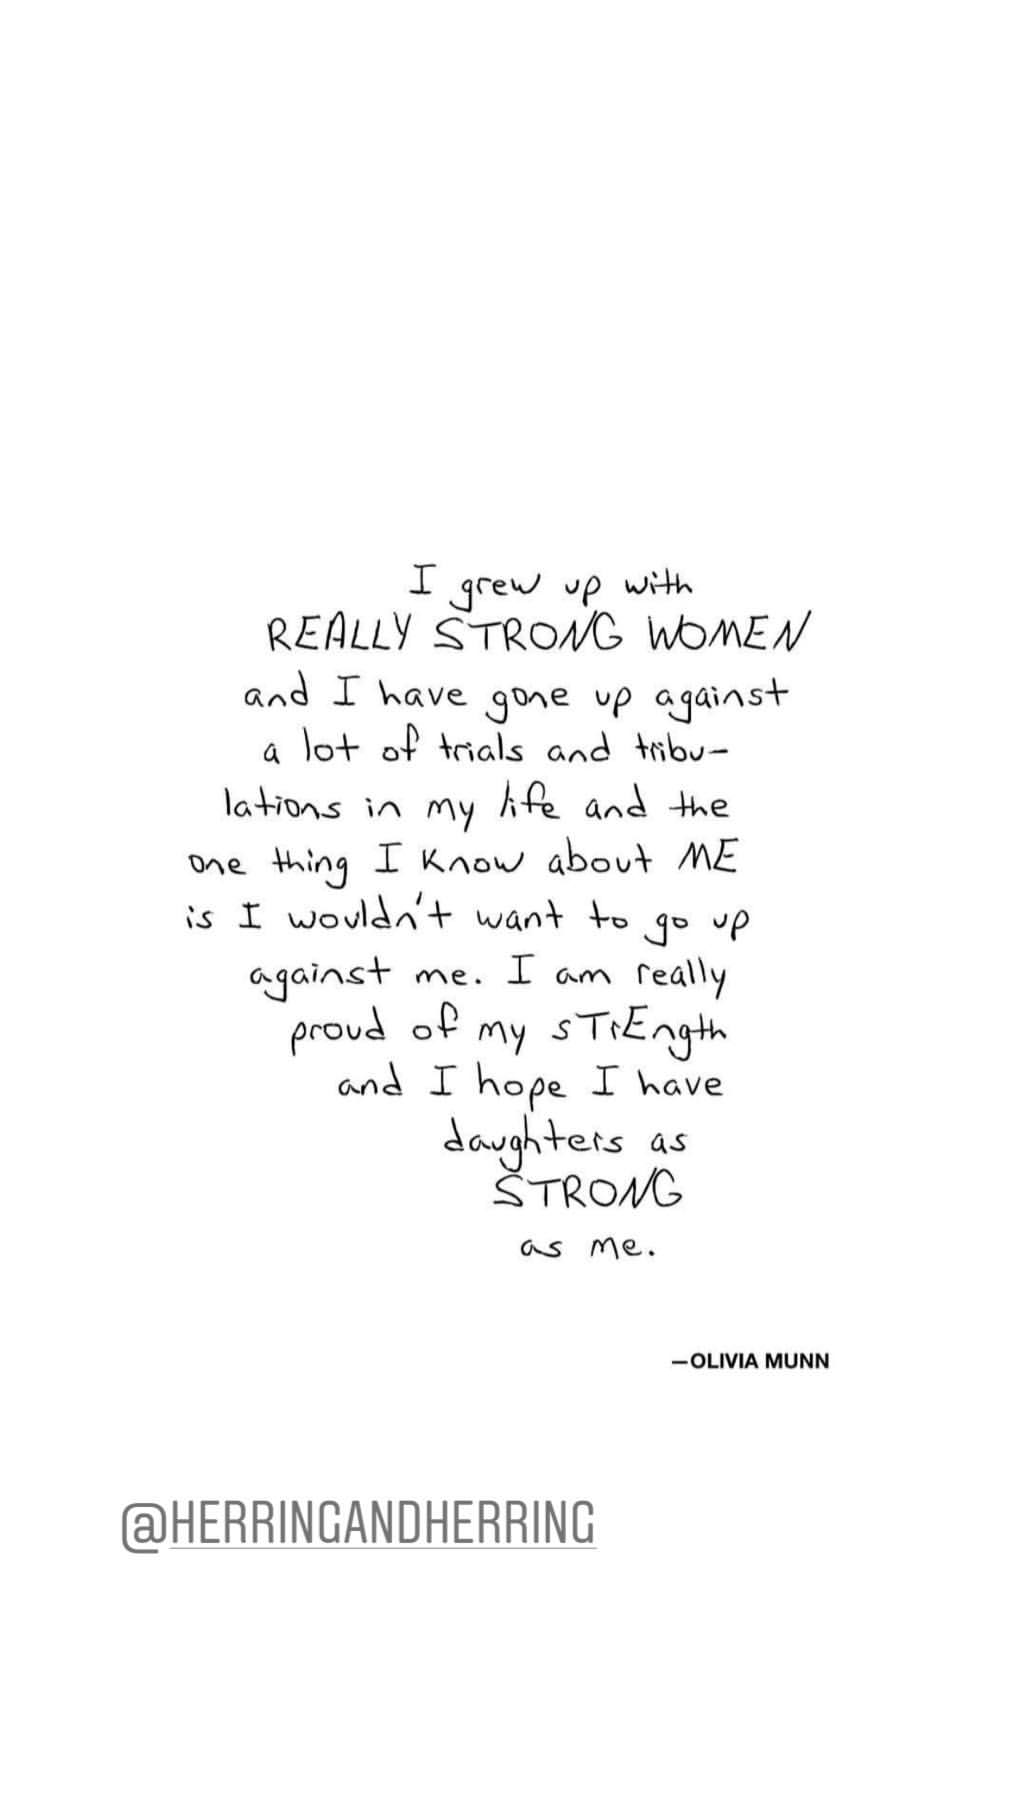 I grew up with
REALLY STRONG WOMEN
and I have gone up against
a lot of trials and tribu-
lations in my life and the
one thing I know about ME
is I wouldn't want to go up
against me. I am really
proud of my sTrEngth
and I hope I have
daughters as
STRONG
as me.
—OLIVIA MUNN
@HERRINGANDHERRING